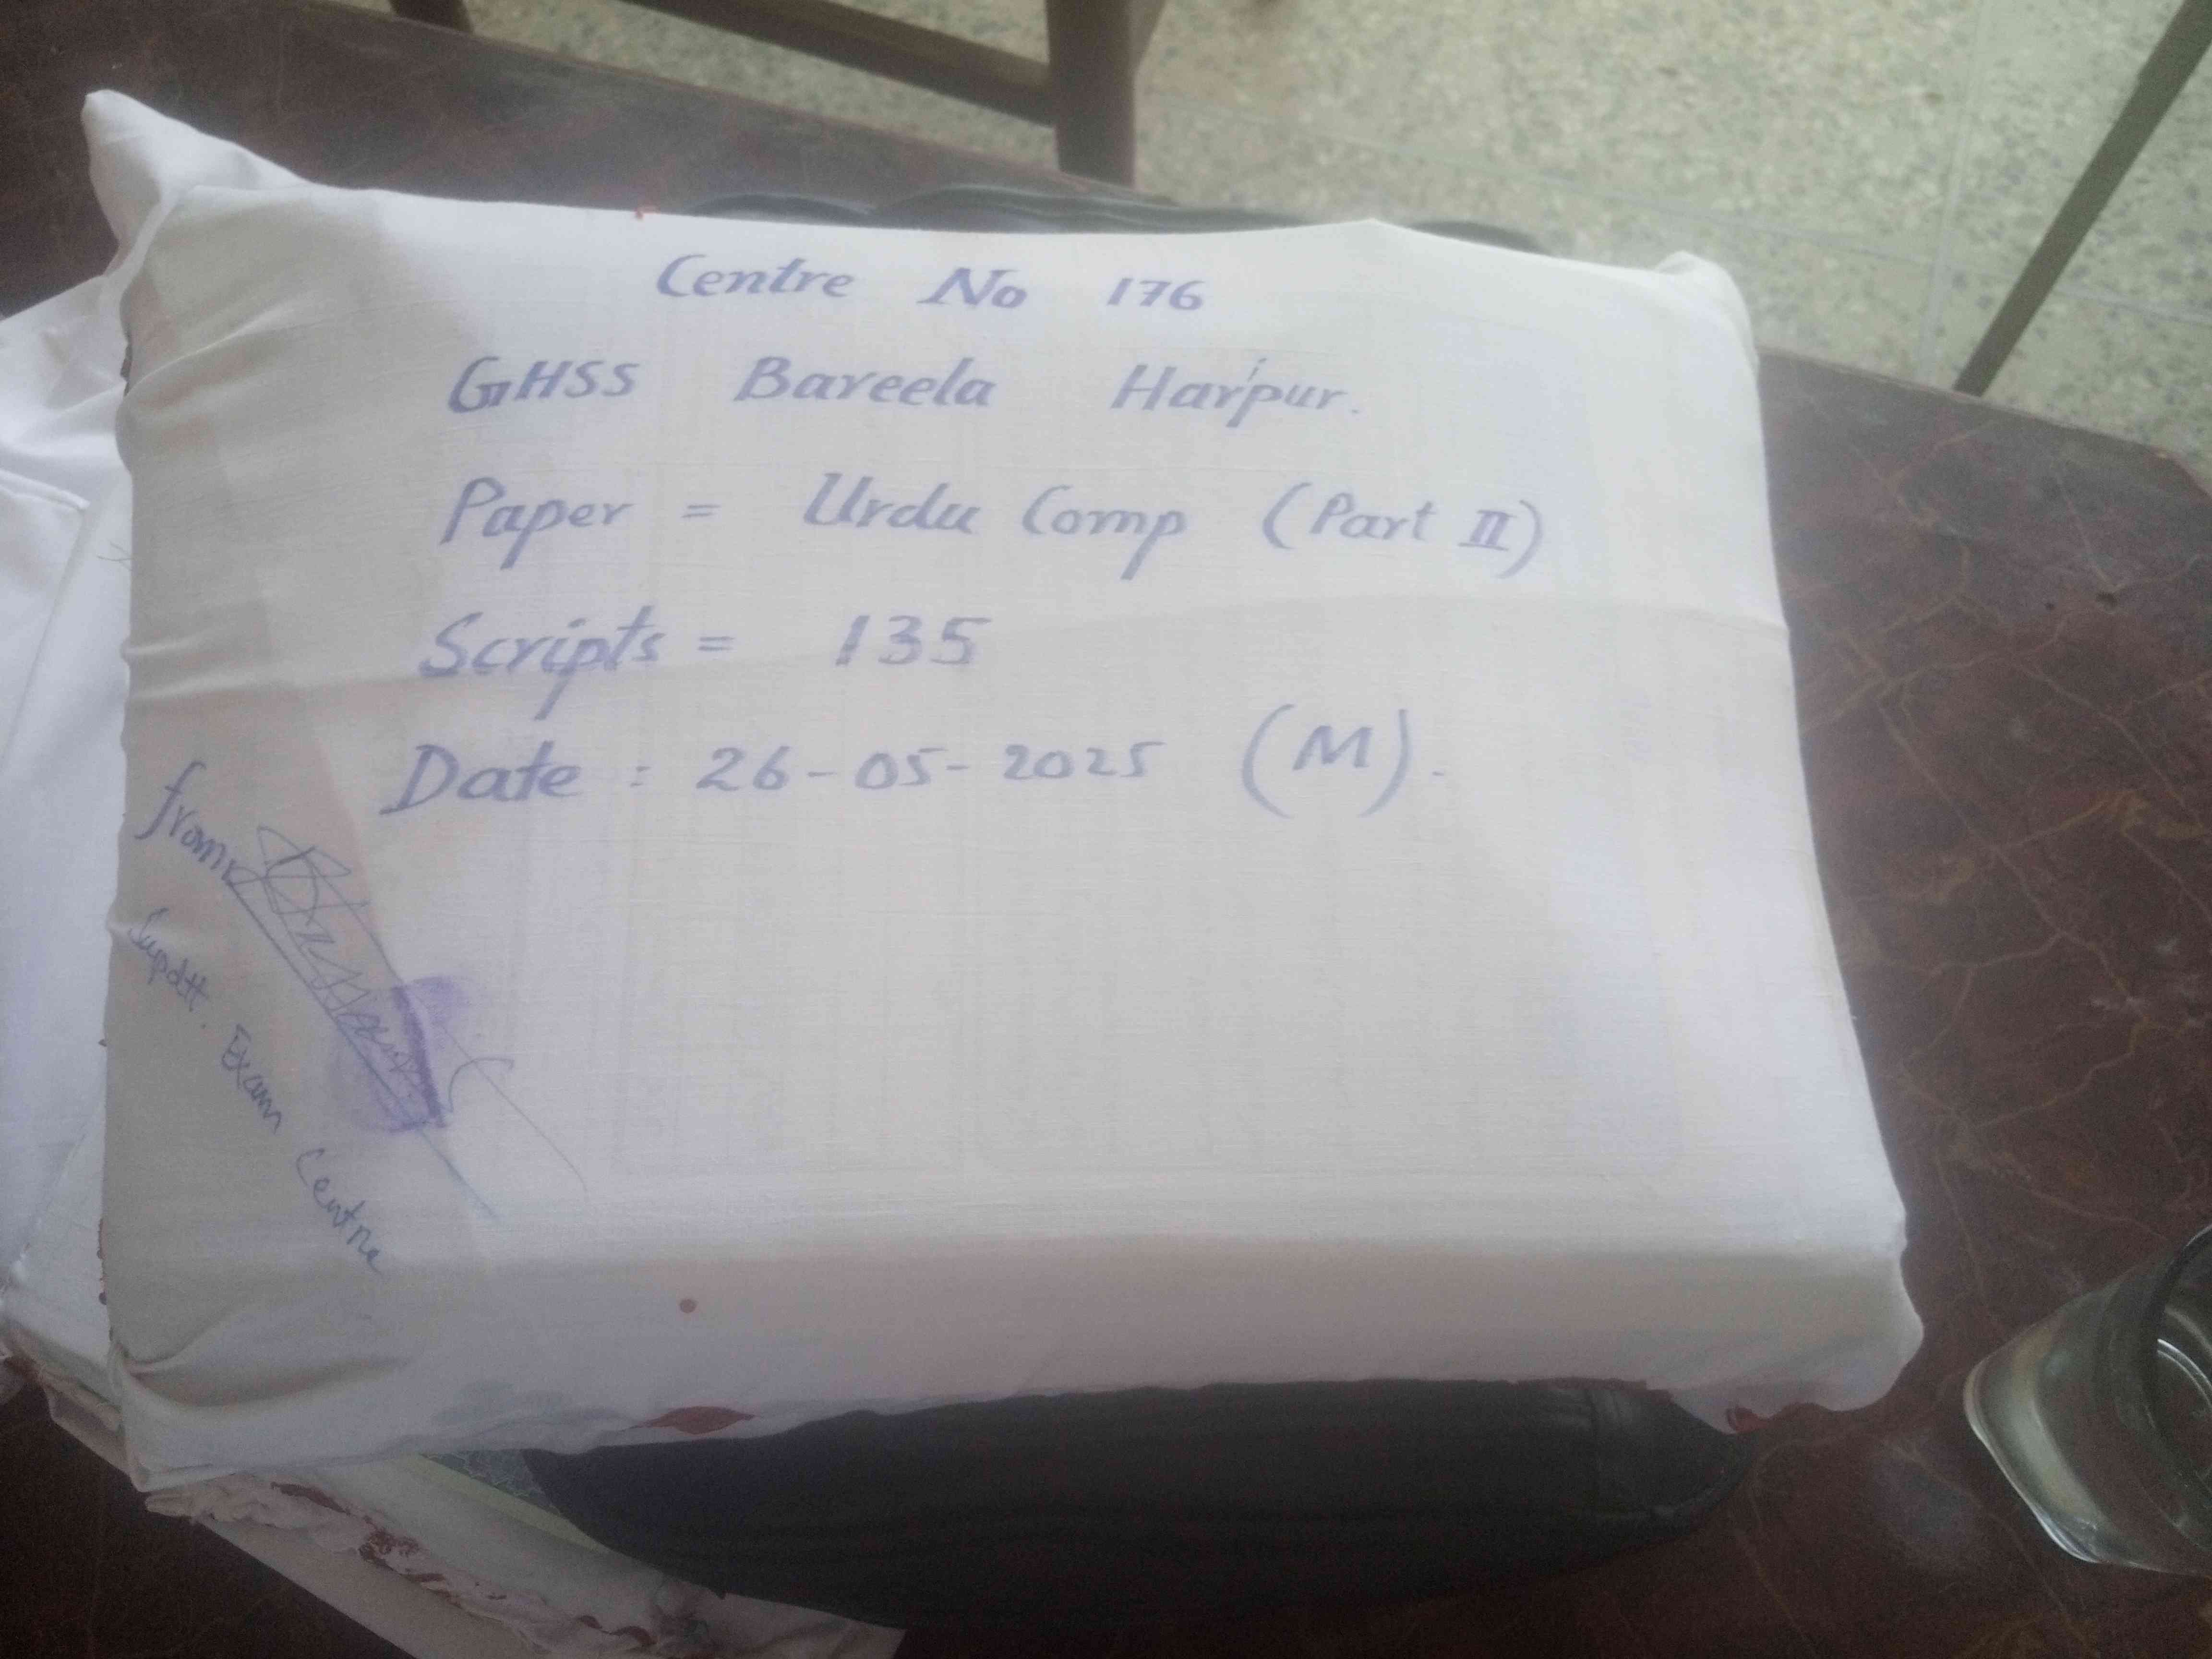 Centre No 176
GHSS Bareela Haripur.
Paper = Urdu Comp (Part II)
Scripts = 135
Date : 26-05-2025 (M).
from
Supdtt. Exam Centre